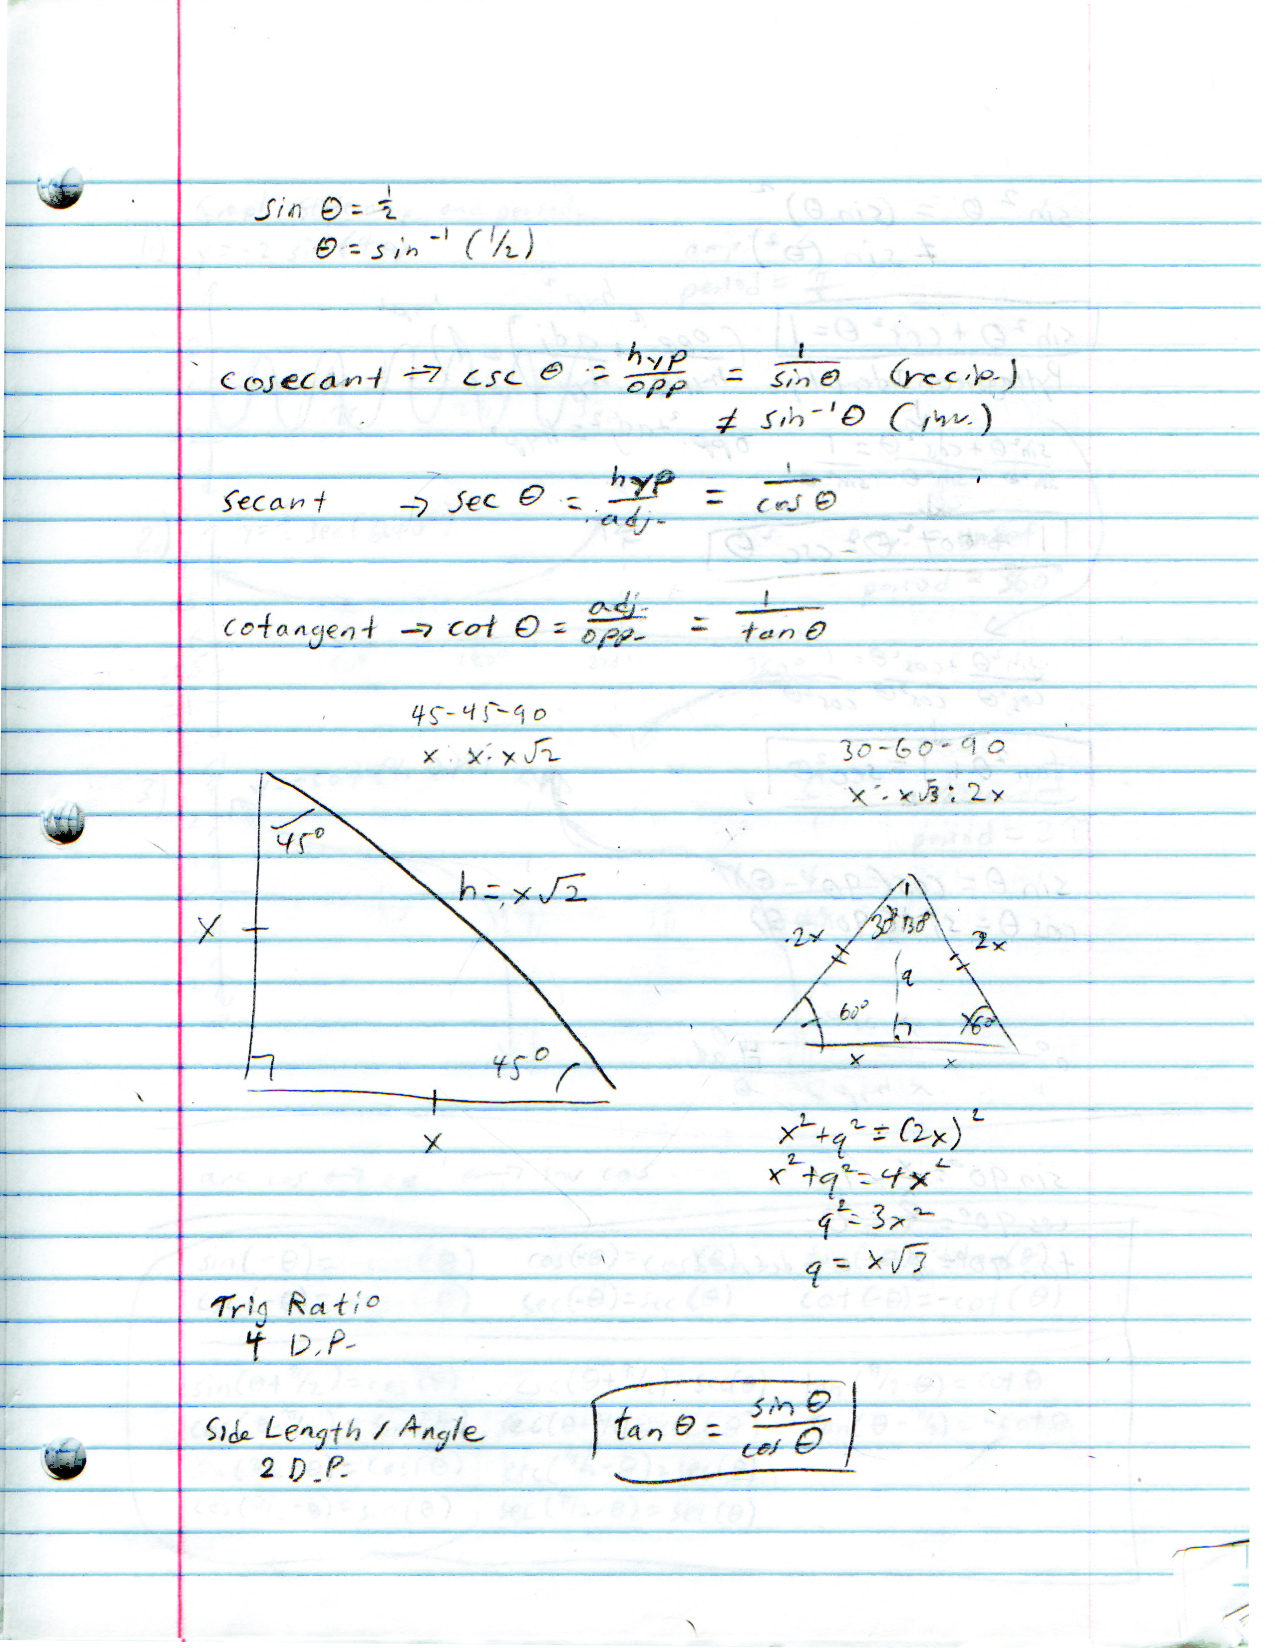 sin θ = 1/2
θ = sin⁻¹ (1/2)
cosecant → csc θ = hyp/opp = 1/sin θ (recip.)
≠ sin⁻¹ θ (inv.)
secant → sec θ = hyp/adj. = 1/cos θ
cotangent → cot θ = adj./opp. = 1/tan θ
45-45-90
x : x : x√2
30-60-90
x : x√3 : 2x
45°
h = x√2
x
45°
x
30° 30°
2x
2x
q
60°
60°
x
x
x² + q² = (2x)²
x² + q² = 4x²
q² = 3x²
q = x√3
Trig Ratio
4 D.P.
Side Length / Angle
2 D.P.
tan θ = sin θ/cos θ